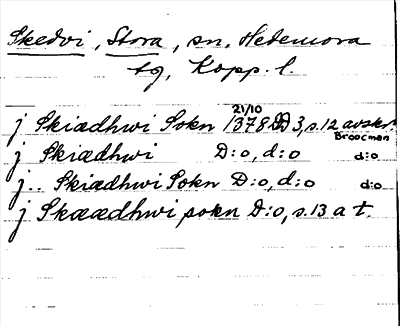 Skedvi, Stora, sn, Hedemora
tg, Kopp. l.
21/10
j Skiædhwi Sokn 1378 DD 3, s. 12 avskr.
Broocman
j Skiædhwi D:o, d:o d:o
j.. Skiædhwi Sokn D:o, d:o d:o
j Skææædhwi sokn D:o, s. 13 a t.